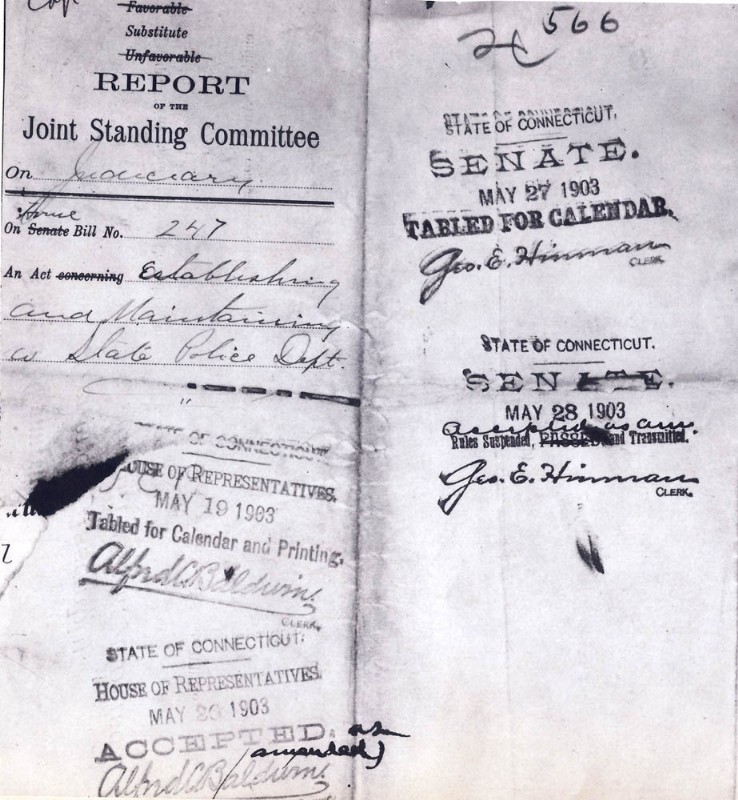 Favorable
Substitute
Unfavorable
REPORT
OF THE
Joint Standing Committee
On Judiciary
House
On Senate Bill No. 247
An Act concerning Establishing
and Maintaining
a State Police Dept.
"
STATE OF CONNECTICUT.
HOUSE OF REPRESENTATIVES.
MAY 19 1903
Tabled for Calendar and Printing.
Alfred C. Baldwin.
CLERK.
STATE OF CONNECTICUT.
HOUSE OF REPRESENTATIVES.
MAY 1903
ACCEPTED. as
amended)
Alfred C. Baldwin.
566
STATE OF CONNECTICUT.
STATE OF CONNECTICUT.
SENATE.
MAY 27 1903
TABLED FOR CALENDAR.
Geo. E. Hinman
CLERK.
STATE OF CONNECTICUT.
SENATE.
MAY 28 1903
accepted as am.
Rules Suspended, PASSED and Transmitted.
Geo. E. Hinman
CLERK.